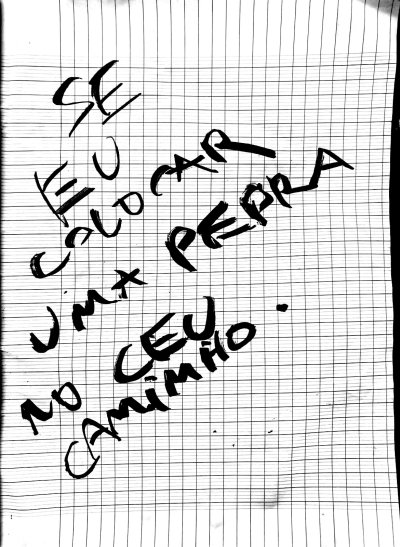 SE
EU
COLOCAR
UMA PEDRA
NO CEU
CAMIMHO.